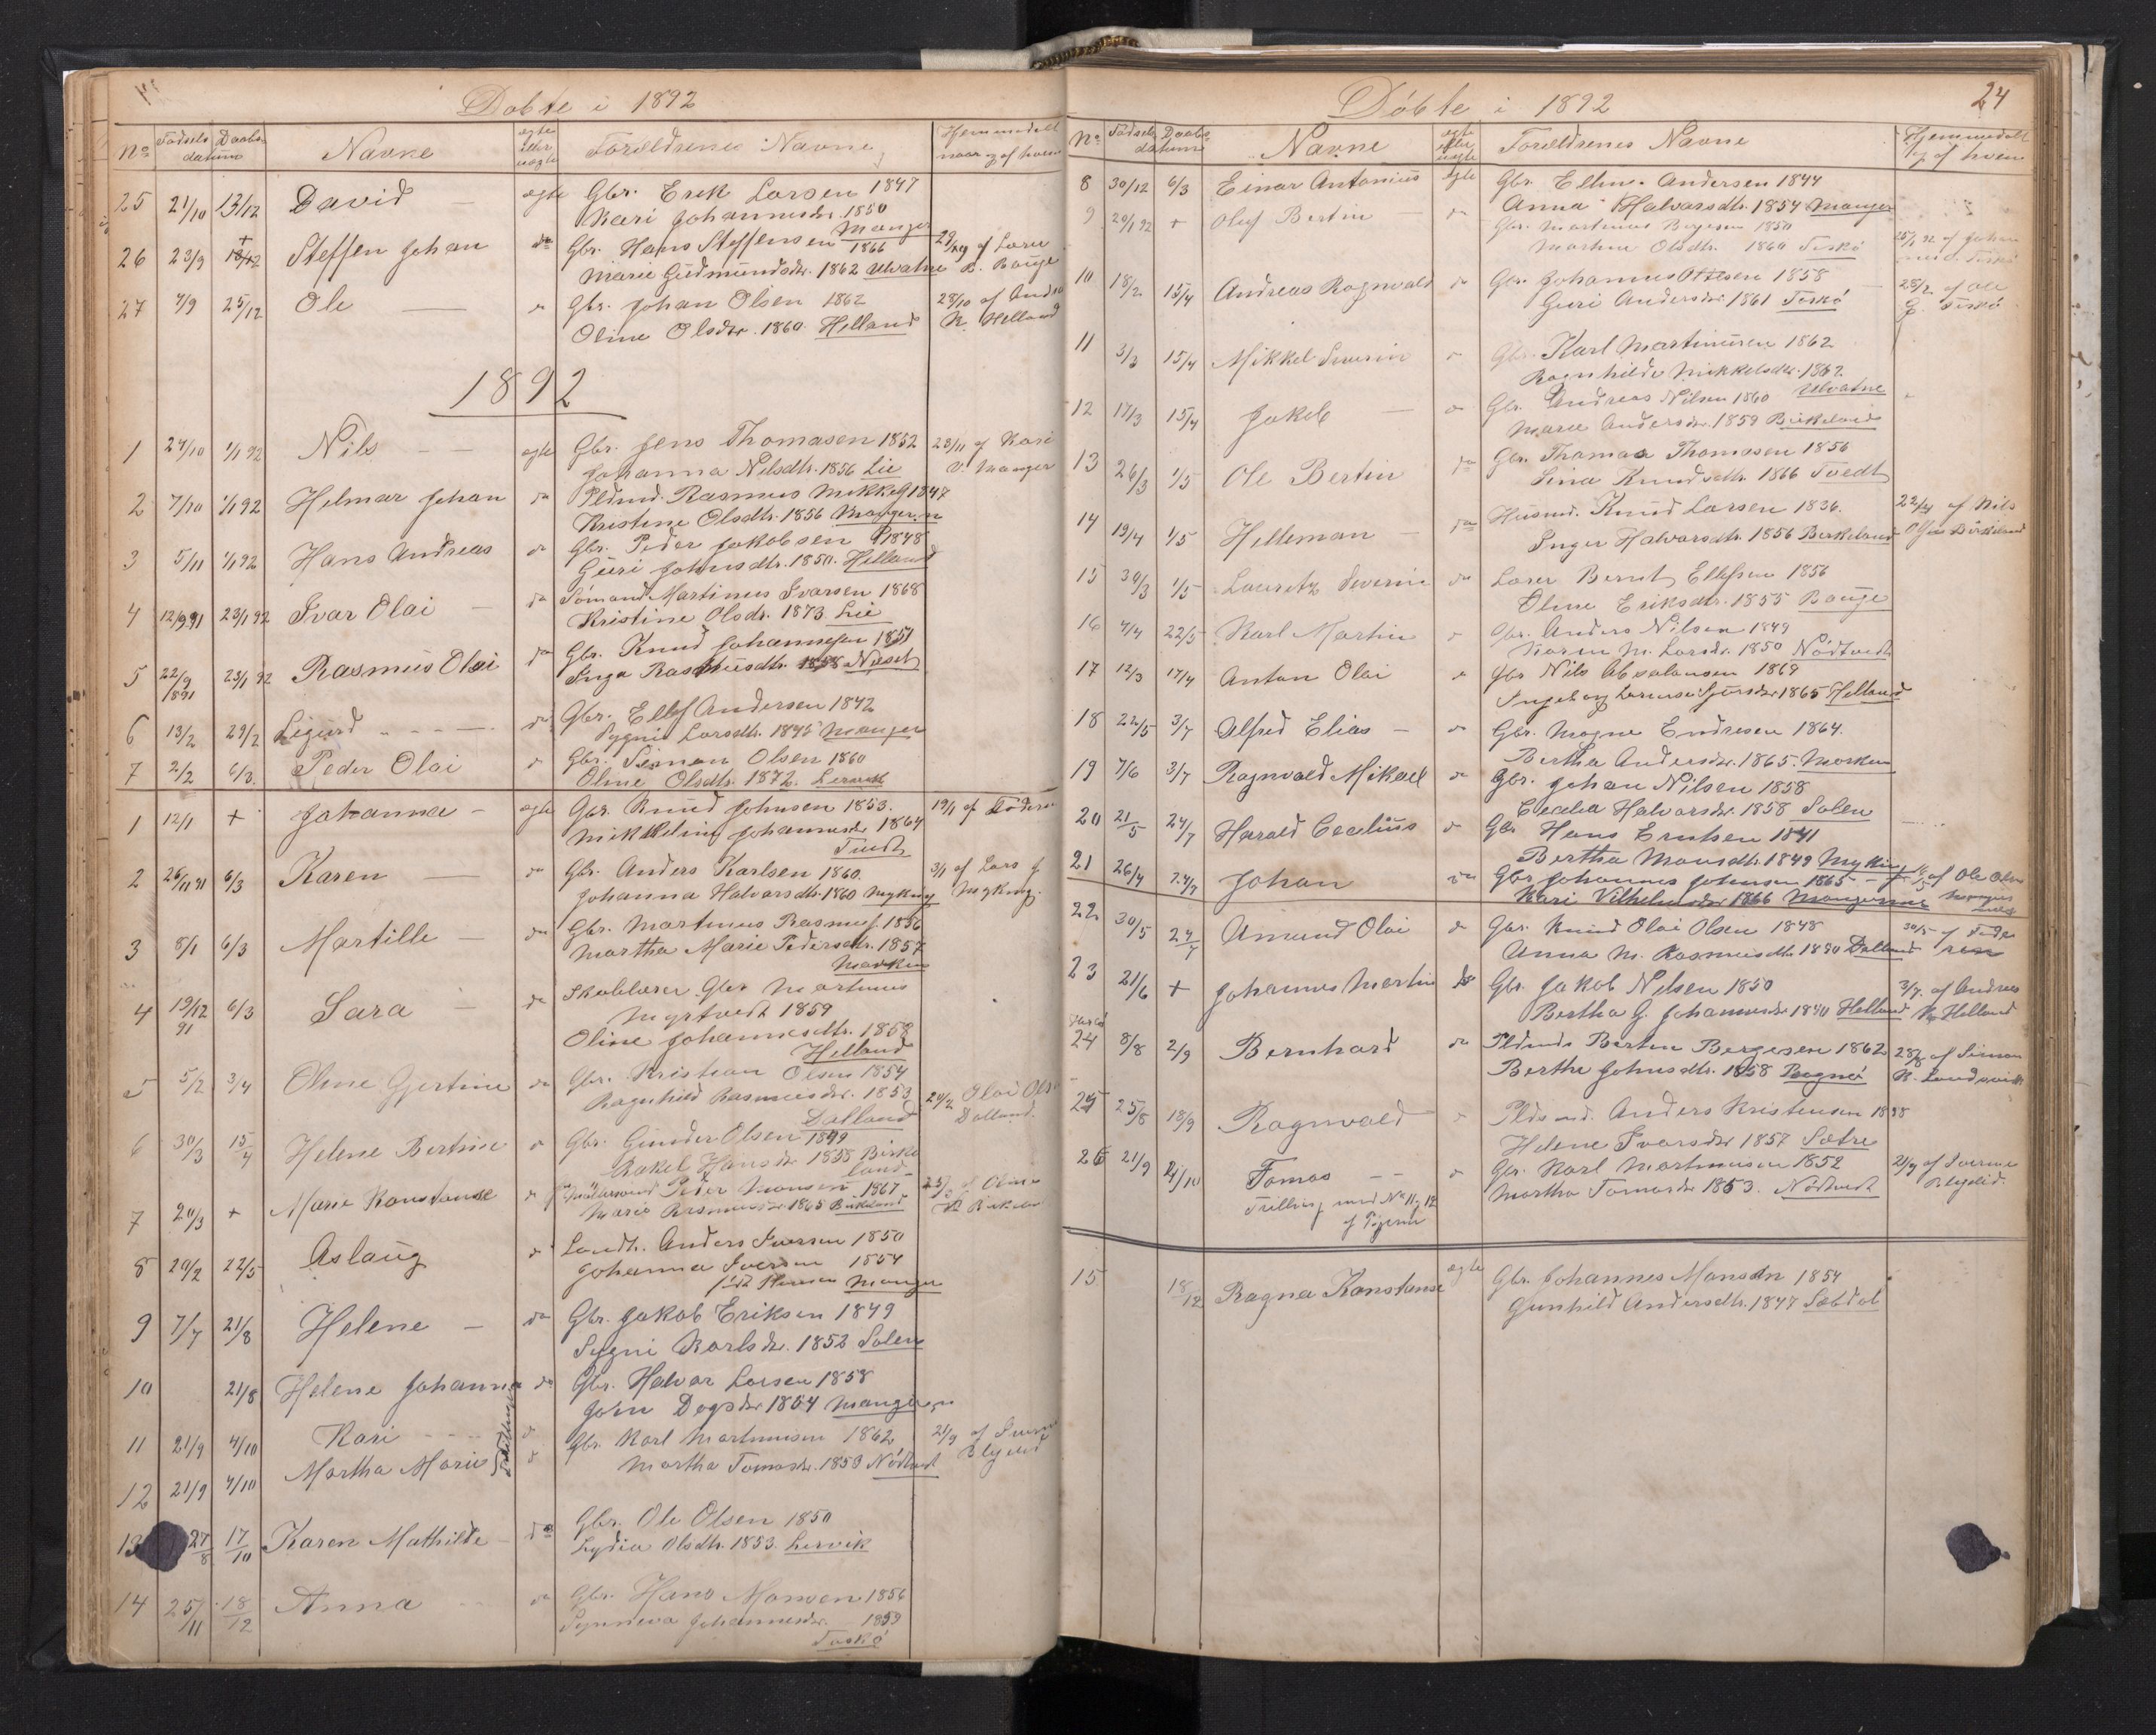 Døbte i 1892
No Fødsels Daabs datum Navne ægte eller uægte Forældrenes Navne Hjemmedøbt naar og af hvem
25 21/10 13/12 David – ægte Gbr. Erik Larsen 1847
Kari Johannesdtr. 1850 Manger
26 23/9 + 13/12 Steffen Johan do Gbr. Hans Steffensen 1866 29/ af Lærer
Marie Gudmundsdtr. 1862 Ulvatne B. Bauge
27 4/9 25/12 Ole – do Gbr. Johan Olsen 1862 28/10 af And
Oline Olsdtr. 1860. Helland K. Helland
1892
1 24/10 1/1 92 Nils – – ægte Gbr. Jens Thomasen 1852 23/11 af Kari
Johanna Nilsdtr. 1856 Lie O. Manger
2 7/10 1/1 92 Helmar Johan do Pldmd. Rasmus Mikkels 1847
Kristine Olsdtr. 1856 Manger
3 5/11 1/1 92 Hans Andreas do Gbr. Peder Jakobsen 1848
Guri Johnsdtr. 1850. Helland
4 12/9 91 23/1 92 Ivar Olai – do Sømand Martinus Ivarsen 1868
Kristine Olsdr. 1873 Lie
5 22/9 1891 23/1 92 Rasmus Olai do Gbr. Knud Johannessen 1851
Inga Rasmusdtr. 1858
6 13/2 29/2 Sigurd – do Gbr. Ellef Andersen 1842
Larsdtr. 1845 Manger
7 2/2 6/3. Peder Olai do Gbr. Simon Olsen 1860
Oline Olsdtr. 1872.
1 12/1 + Johanna – ægte Gbr. Knud Johnsen 1853. 19/1 af
Johannesdr 1864
Tvedt
2 26/11 91 6/3 Karen – do Gbr. Anders Karlsen 1860. 3/1 af Lars J
Johanna Halvarsdtr. 1860 Myking Myking.
3 8/1 6/3 Martille – do Gbr. Martinus Rasmus. 1856
Martha Marie Pedersdtr. 1857
4 19/12 91 6/3 Sara – do Skolelærer Gbr Martinus
1859
Oline Johannesdtr. 1858
Helland
5 5/2 3/4 Oline Gjertine do Gbr. Kristian Olsen 1854
Ragnhild Rasmusdr. 1853 Olai Ols
Dalland Dalland.
6 30/3 15/4 Helene Bertine do Gbr. Gunder Olsen 1849
Rakel Hansdr 1858 Birke
land
7 20/3 + Marie Konstanse do Peder Monsen 1867
Marie Rasmusdr 1865 Birkeland
8 20/2 22/5 Aslaug do Landh. Anders Iversen 1850
Johanna Iversen 1854
født Hansen Manger
9 7/7 21/8 Helene – do Gbr. Jakob Eriksen 1849
Sygni Karlsdr. 1852 Solem
10 21/8 Helene Johanna do Gbr. Halvar Larsen 1858
1854 Manger
11 21/9 4/10 Kari – – do Gbr. Karl Martinusen 1862 21/9 af
12 21/9 4/10 Martha Marie do Martha Tomasdr. 1853 Nødtvedt
13 27/8 17/10 Karen Mathilde do Gbr. Ole Olsen 1850
Lydia Olsdtr. 1853. Lervik
14 25/11 18/12 Anna do Gbr. Hans Monsen 1856
Synneva Johannesdr. 1859
Toskø
Døbte i 1892 24
No Fødsels Daabs datum Navne ægte eller uægte Forældrenes Navne Hjemmedøbt og af hvem
8 30/12 6/3 Einar Antonius ægte Gbr. Andersen 1844
Anna Halvarsdtr. 1854 Manger
9 20/1 92 + Oluf Bertin – do Gbr. Martinus Børgesen 1850 25/1 92 af Johan
Martine Olsdtr. 1860 Toskø
10 18/2 15/4 Andreas Ragnvald do Gbr. Johannes Ottesen 1858 28/2 af Ole
Guri Andersdr 1861 Toskø E. Toskø
11 3/3 15/4 Mikkel Severin do Gbr. Karl Martinusen 1862
Ragnhilde Mikkelsdr. 1862.
Ulvatne
12 17/3 15/4 Jakob – do Gbr. Andreas Nilsen 1860
Marie Andersdr. 1859 Birkeland
13 26/3 1/5 Ole Bertin do Gbr. Thomas Thomasen 1856
Sina Knudsdtr. 1866 Tvedt
14 19/4 1/5 Helleman – do Husmd. Knud Larsen 1836. 22/4 af Nils
Inger Halvarsdtr. 1856 Birkeland Birkeland
15 30/3 1/5 Lauritz Severin do Lærer Bernt Ellefsen 1856
Oline Eriksdtr. 1855 Bauge
16 4/4 22/5 Karl Martin do Gbr. Anders Nilsen 1849
Karen M. Larsdr. 1850 Nødtvedt
17 12/3 17/4 Anton Olai do Gbr Nils Absalonsen 1869
Ingeborg 1865 Helland
18 22/5 3/7 Alfred Elias – do Gbr. Mogne Endresen 1864.
Bertha Andersdr. 1865.
19 7/6 3/7 Ragnvald Mikael do Gbr. Johan Nilsen 1858
Cecelia Halvarsdr. 1858 Solem
20 21/5 24/7 Harald Cecelius do Gbr Hans Erntsen 1841
Bertha Monsdtr. 1849 Myking
21 26/4 24/7 Johan do Gbr Johannes Johnsen 1865 – af Ole Olsn
Kari Vilhelmsdr 1866
22 30/5 24/7 Amund Olai do Gbr. Knud Olai Olsen 1848 30/5 af Fade
Anna M. Rasmusdtr. 1850 Dalland ren
23 21/6 + Johannes Martin do Gbr. Jakob Nilsen 1850 3/7. af Andreas
Bertha G. Johannesdr 1840 Helland Helland
24 8/8 2/9 Bernhard do Pldmd. Bertin Børgesen 1862 28/8 af Simon
Berthe Johnsdtr. 1858 Bognø K. Landsvik
25 25/8 18/9 Ragnvald – do Pldsmd. Anders Kristensen 1858
Helene Ivarsdr 1857 Sætre
26 21/9 4/10 Tomas – – do Gbr. Karl Martinusen 1852 21/9 af
Martha Tomasdr 1853. Nødtvedt
Trilling med No 11 og 12
af Pigerne
15 18/12 Ragna Konstanse ægte Gbr. Johannes Monsen 1854
Gunhild Andersdtr. 1847 Sæbdal